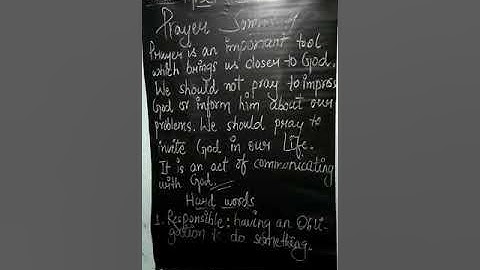 Prayer Summary
Prayer is an important tool
which brings us closer to God.
We should not pray to impress
God or inform him about our
problems. We should pray to
invite God in our Life.
It is an act of communicating
with God.
Hard words
1. Responsible: having an Obli-
gation to do something.